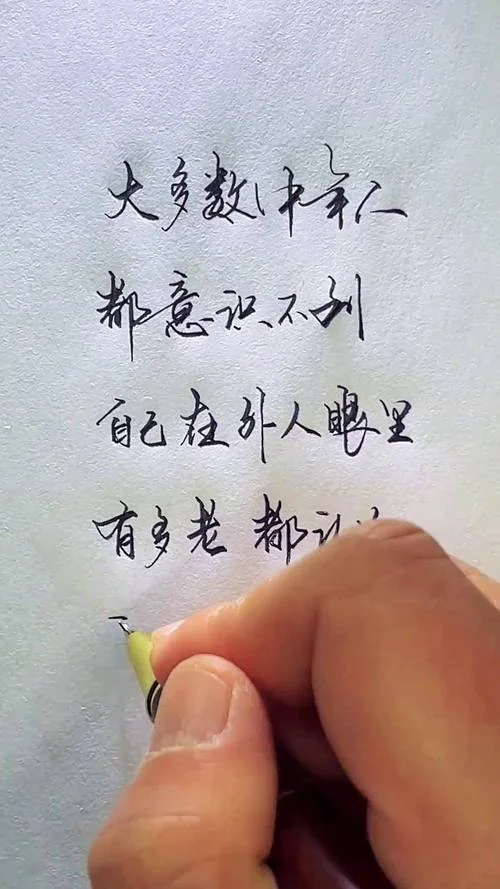 大多数中年人
都意识不到
自己在外人眼里
有多老 都